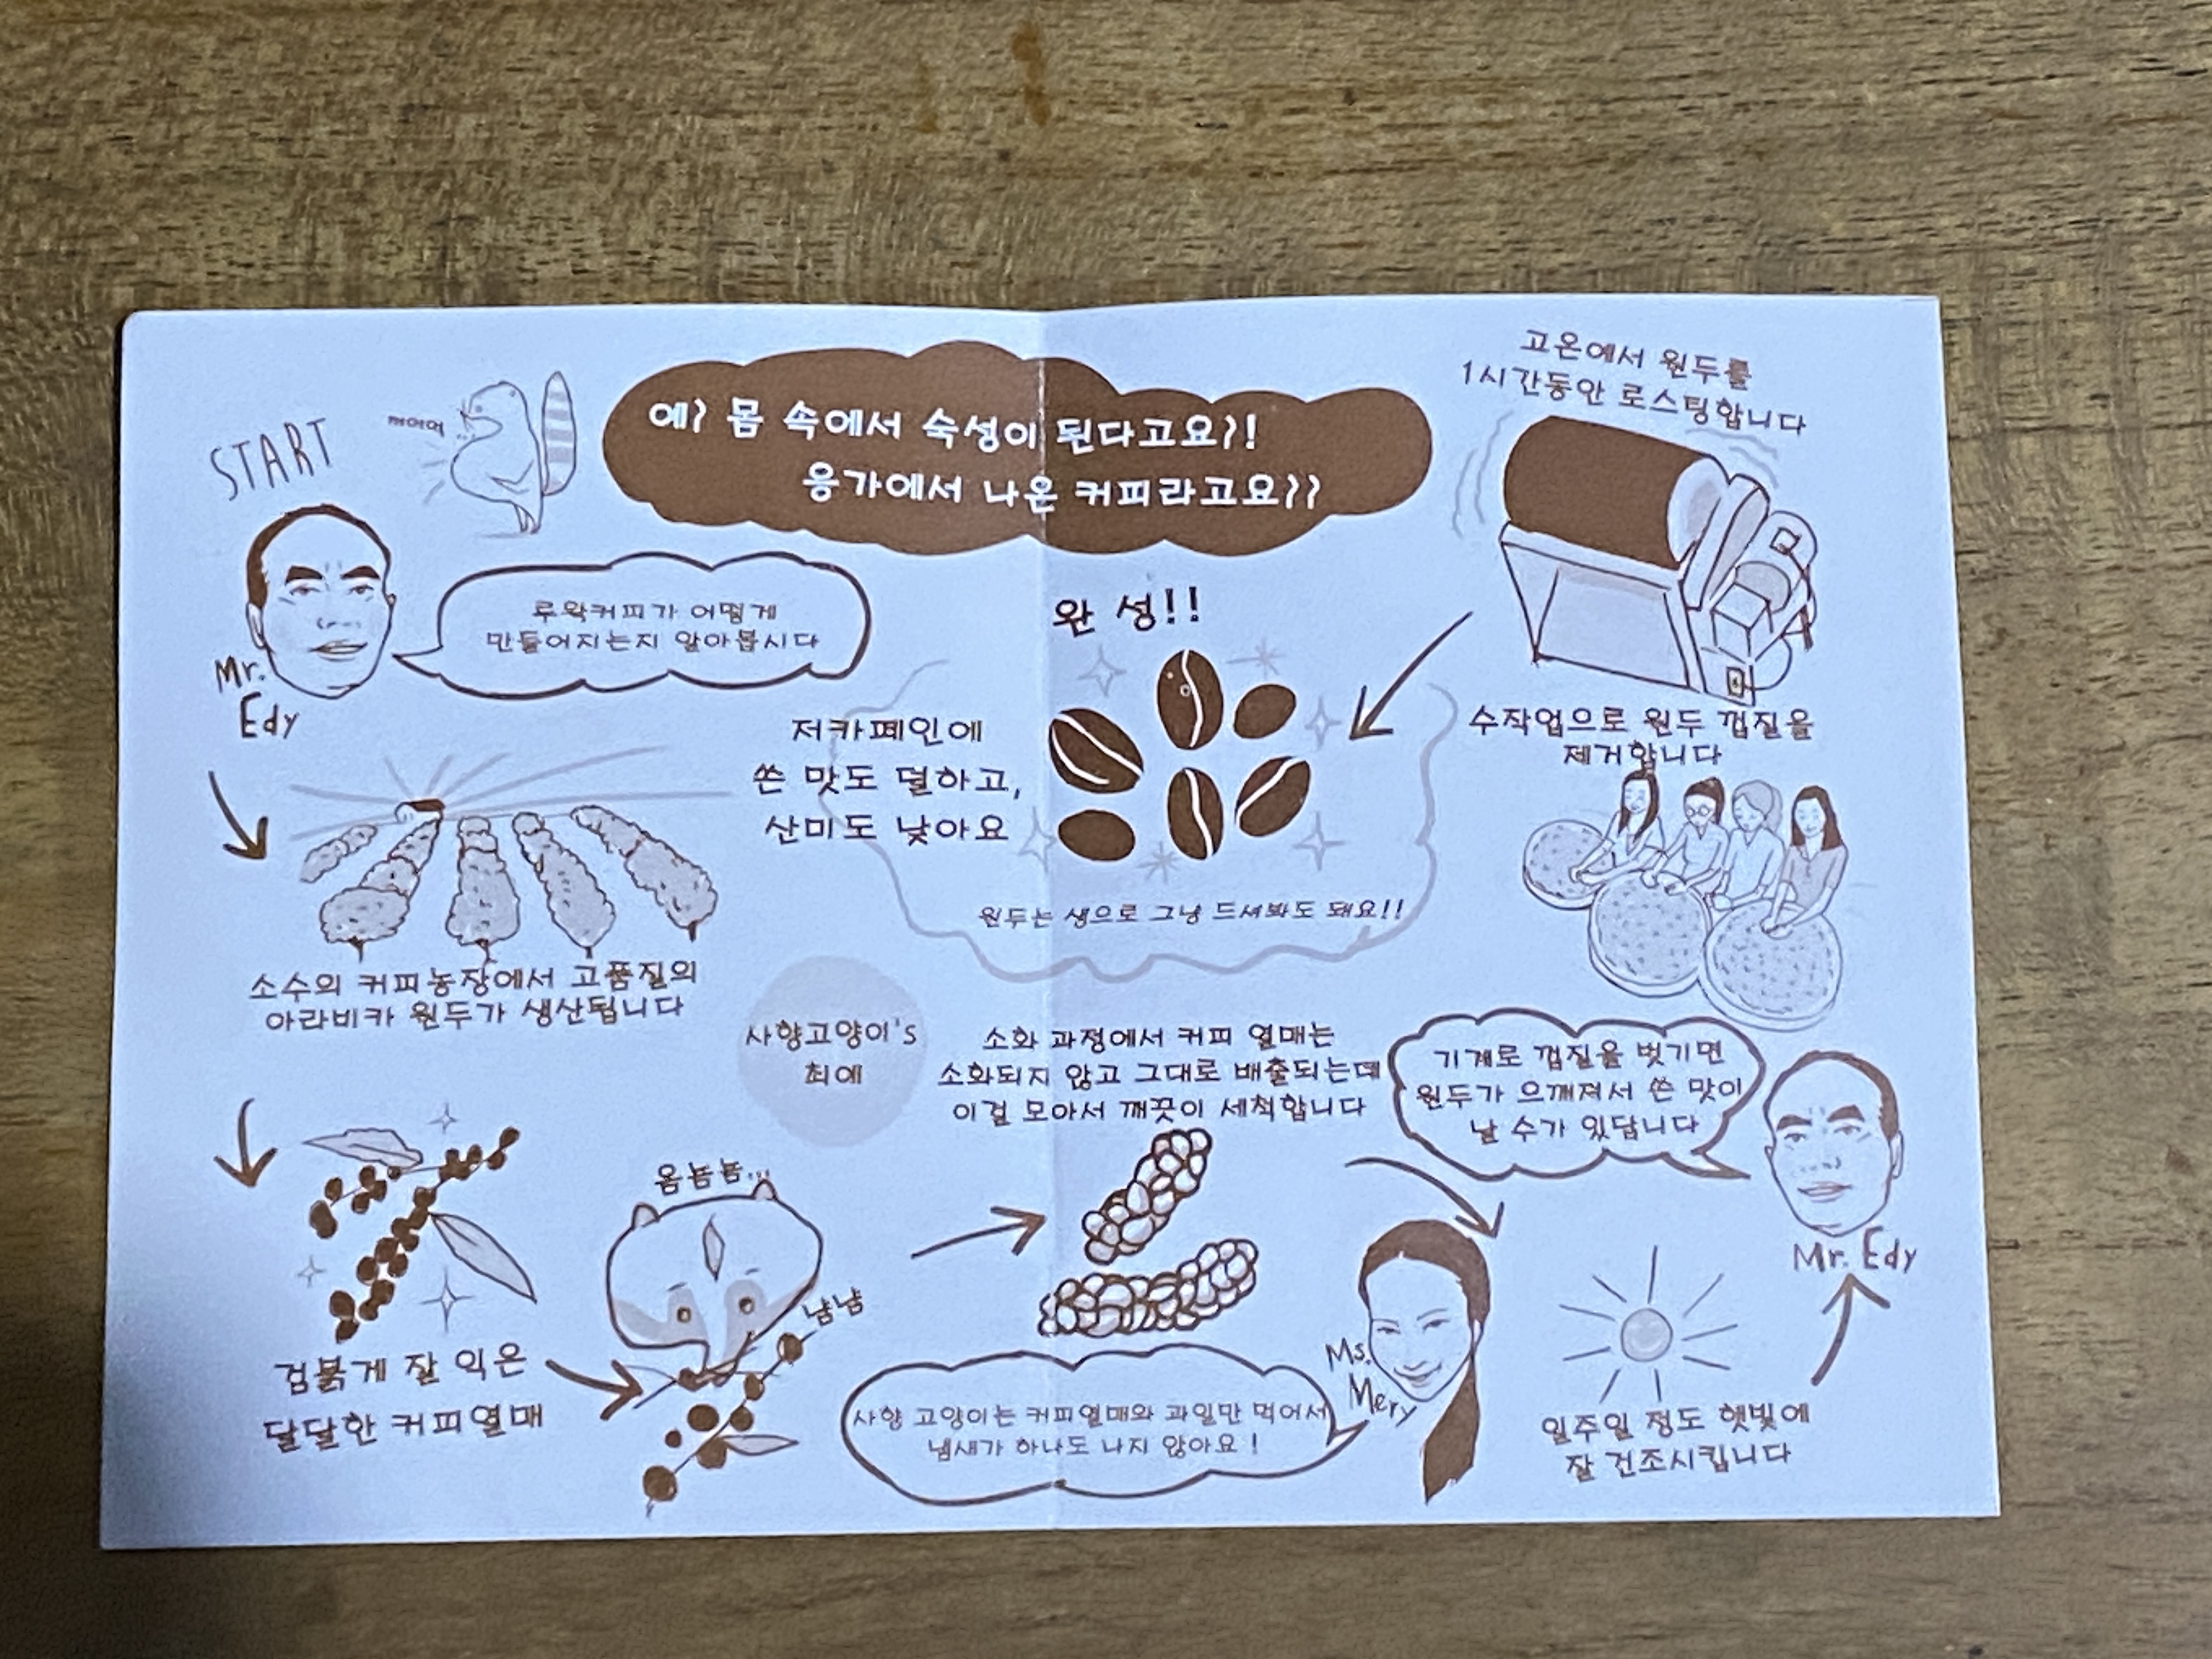 START
꺼어억
예? 몸 속에서 숙성이 된다고요?!
응가에서 나온 커피라고요??
Mr.
Edy
루왁커피가 어떻게
만들어지는지 알아봅시다
소수의 커피농장에서 고품질의
아라비카 원두가 생산됩니다
검붉게 잘 익은
달달한 커피열매
사향고양이's
최애
옴뇸뇸...
냠냠
소화 과정에서 커피 열매는
소화되지 않고 그대로 배출되는데
이걸 모아서 깨끗이 세척합니다
사향 고양이는 커피열매와 과일만 먹어서
냄새가 하나도 나지 않아요!
Ms.
Mery
일주일 정도 햇빛에
잘 건조시킵니다
Mr. Edy
기계로 껍질을 벗기면
원두가 으깨져서 쓴 맛이
날 수가 있답니다
수작업으로 원두 껍질을
제거합니다
고온에서 원두를
1시간동안 로스팅합니다
완성!!
저카페인에
쓴 맛도 덜하고,
산미도 낮아요
원두는 생으로 그냥 드셔봐도 돼요!!